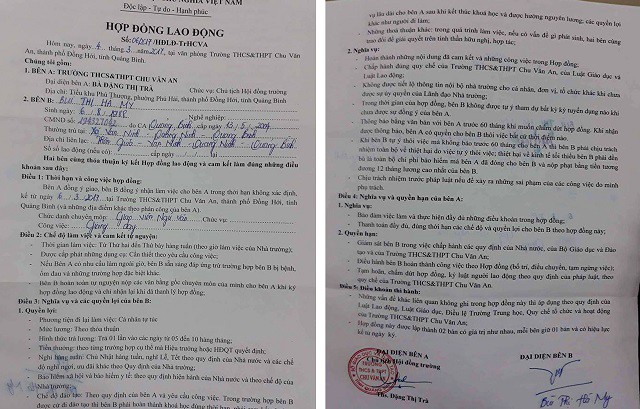 HÒA XÃ HỘI CHỦ NGHĨA VIỆT NAM
Độc lập - Tự do - Hạnh phúc
HỢP ĐỒNG LAO ĐỘNG
/HĐLĐ-TrHCVA
Hôm nay, ngày 4 tháng 3 năm, tại văn phòng Trường THCS&THPT Chu Văn
An, thành phố Đồng Hới, tỉnh Quảng Bình.
Chúng tôi gồm:
1. BÊN A: TRƯỜNG THCS&THPT CHU VĂN AN
Đại diện bên A: BÀ ĐẶNG THỊ TRÀ Chức vụ: Chủ tịch Hội đồng trường
Địa chỉ: Tiểu khu Phú Thượng, phường Phú Hải, thành phố Đồng Hới, tỉnh Quảng Bình
2. BÊN B: BÙI THỊ HÀ MY
Sinh ngày: Nghề nghiệp:
CMND số: do CA Quảng Bình cấp
Thường trú tại: Xã Vạn Ninh - Quảng Ninh - Quảng Bình
Địa chỉ liên lạc: Vạn Ninh - Quảng Ninh - Quảng Bình
Số sổ lao động (nếu có): cấp ngày
Hai bên cùng thỏa thuận ký kết Hợp đồng lao động và cam kết làm đúng những điều
khoản sau đây:
Điều 1: Thời hạn và công việc hợp đồng:
Bên A đồng ý giao, bên B đồng ý nhận làm việc cho bên A trong thời hạn không xác định,
kể từ ngày 6 / 3 / tại Trường THCS&THPT Chu Văn An, thành phố Đồng Hới, tỉnh
Quảng Bình (và những địa điểm khác theo phân công của bên A).
Chức danh chuyên môn: Giáo viên Ngữ văn Chức vụ:
Công việc: Giảng dạy
Điều 2: Chế độ làm việc và cam kết tự nguyện:
- Thời gian làm việc: Từ Thứ hai đến Thứ bảy hàng tuần (theo giờ làm việc của Nhà trường);
- Được cấp phát những dụng cụ: Cần thiết theo yêu cầu công việc;
- Nếu Bên A có nhu cầu làm ngoài giờ, bên B sẵn sàng đáp ứng trừ trường hợp bên B bị bệnh,
ốm đau và những trường hợp đặc biệt khác.
- Bên B hoàn toàn tự nguyện nộp các văn bằng gốc chuyên môn của mình cho bên A khi ký
hợp đồng lao động và chỉ nhận lại khi đã thanh lý hợp đồng.
Điều 3: Nghĩa vụ và các quyền lợi của bên B:
1. Quyền lợi:
- Phương tiện đi lại làm việc: Cá nhân tự túc
- Mức lương: Theo thỏa thuận
- Hình thức trả lương: Trả 01 lần vào các ngày từ 05 đến 10 hàng tháng;
- Tiền thưởng: theo từng trường hợp cụ thể mà Hiệu trưởng hoặc HĐQT quyết định;
- Nghỉ hàng tuần: Chủ Nhật hàng tuần, nghỉ Lễ, Tết theo quy định của Nhà nước và các chế
độ nghỉ ngơi, ưu đãi khác theo Quy định của Nhà trường;
- Bảo hiểm xã hội và bảo hiểm y tế: theo quy định hiện hành của Nhà nước và theo chế độ của
Nhà trường;
- Chế độ đào tạo: Theo quy định của bên A và yêu cầu công việc. Trong trường hợp bên B
được cử đi đào tạo thì bên B phải hoàn thành khoá học đúng thời hạn,
vụ lâu dài cho bên A sau khi kết thúc khoá học và được hưởng nguyên lương, các quyền lợi
khác như người đi làm;
- Những thoả thuận khác: trong quá trình làm việc, nếu có vấn đề gì phát sinh, hai bên cùng
trao đổi để giải quyết trên tinh thần hữu nghị, hợp tác;
2. Nghĩa vụ:
- Hoàn thành những nội dung đã cam kết và những công việc trong Hợp đồng;
- Chấp hành đúng quy chế của Trường THCS&THPT Chu Văn An, của Luật Giáo dục và
Luật Lao động;
- Không được tiết lộ thông tin nội bộ nhà trường cho cá nhân, đơn vị, tổ chức khác khi chưa
được sự uỷ quyền của Lãnh đạo Nhà trường;
- Trong thời gian của hợp đồng, bên B không được tự ý tham dự bất kỳ kỳ tuyển dụng nào khi
chưa được sự đồng ý của bên A;
- Thông báo bằng văn bản với bên A trước 60 tháng khi muốn chấm dứt hợp đồng. Khi nhận
được thông báo, bên A có quyền cho bên B thôi việc bất cứ thời điểm nào.
- Khi bên B tự ý thôi việc mà không báo trước 60 tháng cho bên A thì bên B phải chịu trách
nhiệm toàn bộ về thiệt hại do việc tự ý thôi việc; thiệt hại về kinh tế tối thiểu bên B phải đền
bù là toàn bộ chi phí bảo hiểm mà bên A đã đóng cho bên B và nộp phạt bằng tiền tương
đương 12 tháng lương cao nhất của bên B.
- Chịu trách nhiệm trước pháp luật nếu để xảy ra những sai phạm của các công việc do mình
phụ trách.
Điều 4: Nghĩa vụ và quyền hạn của bên A:
1. Nghĩa vụ:
- Bảo đảm việc làm và thực hiện đầy đủ những điều khoản trong hợp đồng;
- Thanh toán đầy đủ, đúng thời hạn các chế độ và quyền lợi cho bên B theo hợp đồng này;
2. Quyền hạn:
- Giám sát bên B trong việc chấp hành các quy định của Nhà nước, của Bộ Giáo dục và Đào
tạo và của Trường THCS&THPT Chu Văn An;
- Điều hành bên B hoàn thành công việc theo Hợp đồng (bố trí, điều chuyển, tạm ngừng việc);
- Tạm hoãn, chấm dứt hợp đồng, kỷ luật người lao động theo quy định của pháp luật, theo
quy chế của Trường THCS&THPT Chu Văn An.
Điều 5: Điều khoản thi hành:
- Những vấn đề khác liên quan không ghi trong hợp đồng này thì áp dụng theo quy định của
Luật Lao động, Luật Giáo dục, Điều lệ Trường Trung học, Quy chế tổ chức và hoạt động
của Trường THCS&THPT Chu Văn An;
- Hợp đồng này được lập thành 02 bản có giá trị như nhau, mỗi bên giữ 01 bản và có hiệu lực
kể từ ngày ký.
ĐẠI DIỆN BÊN A ĐẠI DIỆN BÊN B
Chủ tịch Hội đồng trường
TRƯỜNG
THCS & THPT
CHU VĂN AN
Ths. Đặng Thị Trà
Bùi Thị Hà My